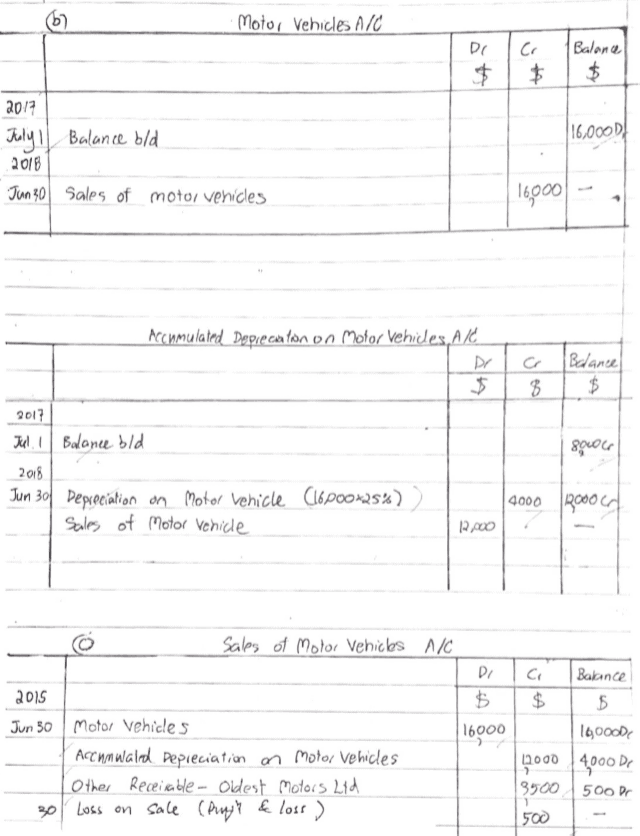 (b) Motor Vehicles A/C
Dr Cr Balance
$ $ $
2017
July 1 Balance b/d 16,000 Dr
2018
Jun 30 Sales of motor vehicles 16,000 –
Accumulated Depreciation on Motor Vehicles A/C
Dr Cr Balance
$ $ $
2017
Jul. 1 Balance b/d 8,000 Cr
2018
Jun 30 Depreciation on Motor Vehicle (16,000x25%) 4000 12,000 Cr
Sales of Motor Vehicle 12,000 –
(c) Sales of Motor Vehicles A/C
Dr Cr Balance
2015 $ $ $
Jun 30 Motor Vehicles 16,000 16,000 Dr
Accumulated Depreciation on Motor Vehicles 12,000 4,000 Dr
Other Receivable – Oldest Motors Ltd 3,500 500 Dr
30 Loss on Sale (Profit & loss) 500 –